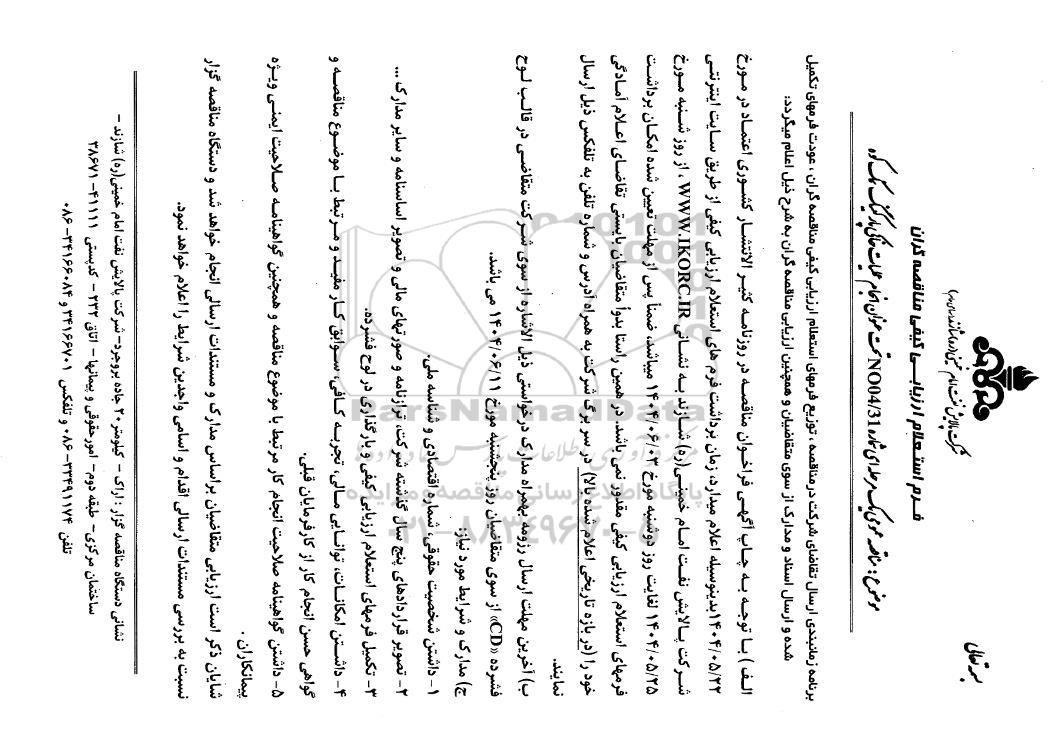 بسمه تعالی
شرکت پالایش نفت امام خمینی (ره) شازند (سهامی عام)
فـرم استـعلام ارزیـابـی کیفـی مناقصه گران
موضوع: مناقصه عمومی یک مرحله ای شماره NO04/31 تحت عنوان انجام عملیات
برنامه زمانبندی ارسال تقاضای شرکت درمناقصه ، توزیع فرمهای استعلام ارزیابی کیفی مناقصه گران ، عودت فرمهای تکمیل
شده و ارسال اسناد و مدارک از سوی متقاضیان و همچنین ارزیابی مناقصه گران به شرح ذیل اعلام میگردد:
الـف ) بـا تـوجـه بـه چـاپ آگهـی فراخـوان مناقصـه در روزنامـه کثیـر الانتشـار کشـوری اعتمـاد در مـورخ
۱۴۰۴/۰۵/۲۲بدینوسیله اعلام میدارد، زمان برداشت فرم های استعلام ارزیابی کیفی از طریق سـایت اینترنتـی
شـرکت پـالایش نفـت امـام خمینـی(ره) شـازند بـه نشـانی WWW.IKORC.IR ، از روز شـنبه مـورخ
۱۴۰۴/۰۵/۲۵ لغایت روز دوشنبه مورخ ۱۴۰۴/۰۶/۰۳ میباشد، ضمناً پس از مهلت تعیین شده امکـان برداشـت
فرمهای استعلام ارزیـابی کیفـی مقـدور نمی باشد. در همین راستا بدواً متقاضیان بایستی تقاضـای اعـلام آمـادگی
خود را (در بازه تاریخی اعلام شده بالا) در سر برگ شرکت به همراه آدرس و شماره تلفن به تلفکس ذیل ارسال
نمایند.
ب) آخرین مهلت ارسال رزومه بهمراه مدارک درخواستی ذیل الاشاره از سوی شـرکت متقاضـی در قالـب لـوح
فشرده «CD» از سوی متقاضیان روز پنجشنبه مورخ ۱۴۰۴/۰۶/۱۱ می باشد.
ج) مدارک و شرایط مورد نیاز:
۱- داشتن شخصیت حقوقی، شماره اقتصادی و شناسه ملی.
۲- تصویر قراردادهای پنج سال گذشته شرکت، ترازنامه و صورتهای مالی و تصویر اساسنامه و سایر مدارک ...
۳- تکمیل فرمهای استعلام ارزیابی کیفی و بارگذاری در لوح فشرده.
۴- داشـتن امکانـات، توانـایی مـالی، تجربـه کـافی، سـوابق کـار مفیـد و مـرتبط بـا موضـوع مناقصـه و
گواهی حسن انجام کار از کارفرمایان قبلی.
۵- داشتن گواهینامه صلاحیت انجام کار مرتبط با موضوع مناقصه و همچنین گواهینامـه صـلاحیت ایمنـی ویـژه
پیمانکاران .
شایان ذکر است ارزیابی متقاضیان براساس مدارک و مستندات ارسالی انجام خواهد شد و دستگاه مناقصه گزار
نسبت به بررسی مستندات ارسالی اقدام و اسامی واجدین شرایط را اعلام خواهد نمود.
نشانی دستگاه مناقصه گزار : اراک – کیلومتر ۲۰ جاده بروجرد- شرکت پالایش نفت امام خمینی(ره) شازند –
ساختمان مرکزی – طبقه دوم- امورحقوقی و پیمانها – اتاق ۲۳۲ – کدپستی ۴۱۱۱۱-۳۸۶۷۱
تلفن ۳۳۴۹۱۱۷۴-۰۸۶ و تلفکس ۳۴۱۶۶۷۰۱ و ۳۴۱۶۶۰۸۴-۰۸۶
ParsNamadData
پایگاه اطلاع رسانی مناقصه و مزایده